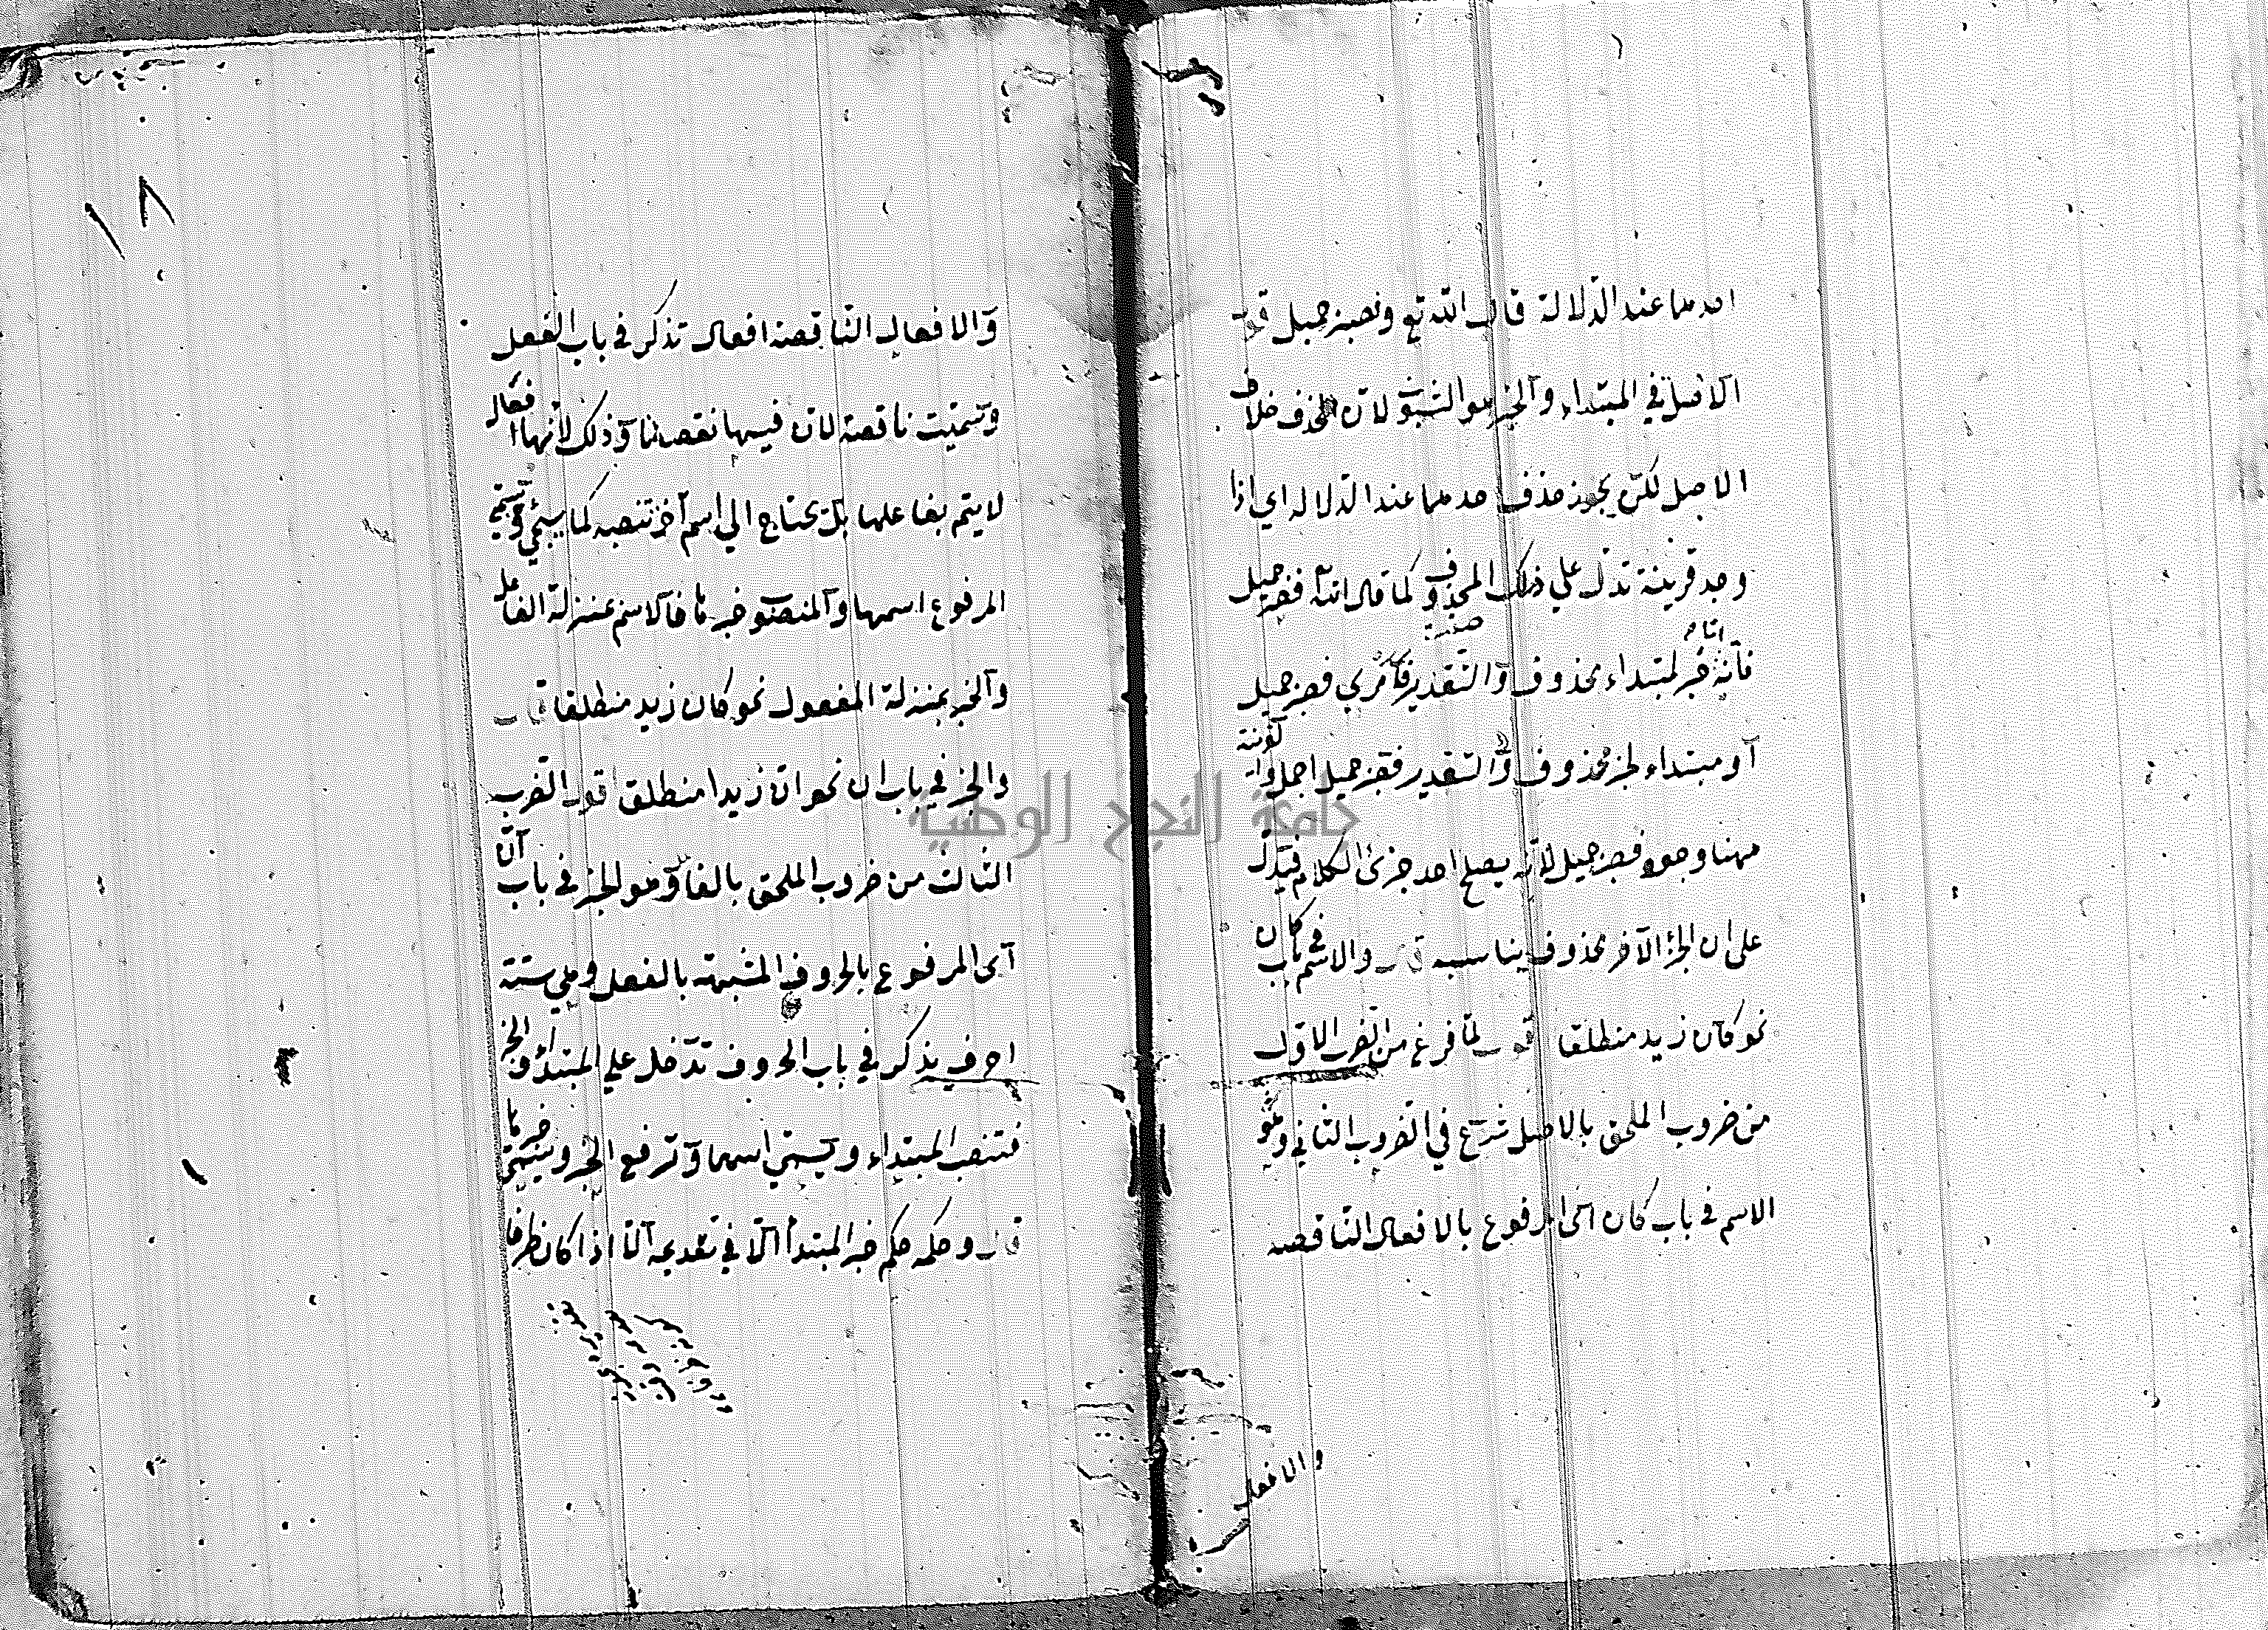 احدهما عند الدلالة قال الله تع فصبر جميل قول
الاصل في المبتداء والخبر هو الثبوت لان الحذف خلاف
الاصل لكن يجوز حذف احدهما عند الدلالة اي اذا
وجد قرينة تدل علي ذلك المحذوف كما قال الله فصبر جميل
فانه اما خبر لمبتداء محذوف والتقدير فامري فصبر جميل
او مبتداء لخبر محذوف والتقدير فصبر جميل اجمل والقرينة
ههنا وجود فصبر جميل لانه يصلح احد جزئ الكلام فيدل
على ان الجزء الآخر محذوف يناسبه قال والاسم في باب كان
نحو كان زيد منطلقا قول لما فرغ من الضرب الاول
من ضروب الملحق بالاصل شرع في الضروب الثاني وهو
الاسم في باب كان اى المرفوع بالافعال الناقصه
والافعال
١٨
والافعال الناقصة افعال تذكر في باب الفعل
وسميت ناقصة لان فيها نقصانا وذلك لانها افعال
لا يتم بفاعلها بل تحتاج الي اسم آخر تنصبه كما يجئ ويسمى
المرفوع اسمها والمنصوب خبرها فالاسم بمنزلة الفاعل
والخبر بمنزلة المفعول نحو كان زيد منطلقا قال
والخبر في باب ان نحو ان زيدا منطلق قول الضرب
الثالث من ضروب الملحق بالفا وهو الخبر في باب ان
اى المرفوع بالحروف المشبهة بالفعل وهي ستة
احرف يذكر في باب الحروف تدخل علي المبتدأ والخبر
فتنصب المبتداء ويسمي اسمها وترفع الخبر ويسمى خبرها
قال وحكمه حكم خبر المبتدأ الا في تقديمه الا اذا كان ظرفا
جامعة النجاح الوطنية